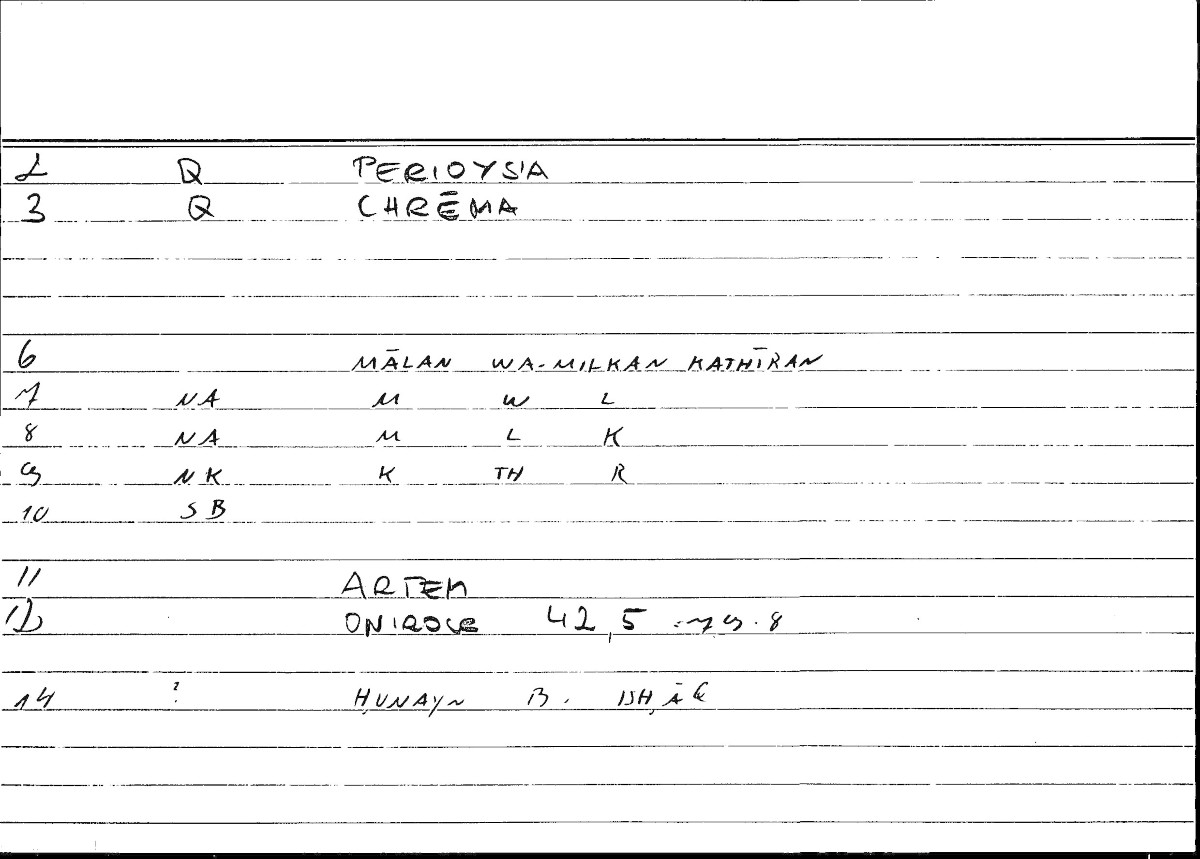 2 Q PERIOYSIA
3 Q CHRĒMA
6 MĀLAN WA-MILKAN KATHĪRAN
7 NA M W L
8 NA M L K
9 NK K TH R
10 SB
11 ARTEM
12 ONIROCR 42,5 = 79.8
14 ? ḤUNAYN B. ISḤĀQ